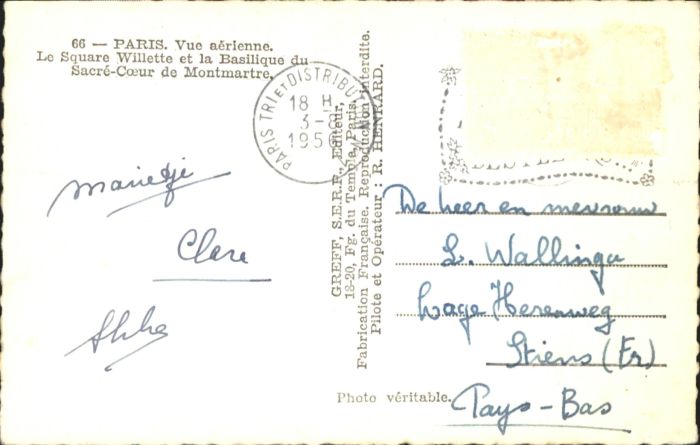 66 — PARIS. Vue aérienne.
Le Square Willette et la Basilique du
Sacré-Cœur de Montmartre.
PARIS TRI ET DISTRIBU
18 H
3-
195
mariedji
Clara
GREFF, S.E.R.P., Editeur,
18-20, Fg. du Temple, Paris.
Fabrication Française. Reproduction interdite.
Pilote et Opérateur : R. HENRARD.
De heer en mevrouw
L. Wallinga
Lage Herenweg
Stiens (Fr)
Pays-Bas
Photo véritable.